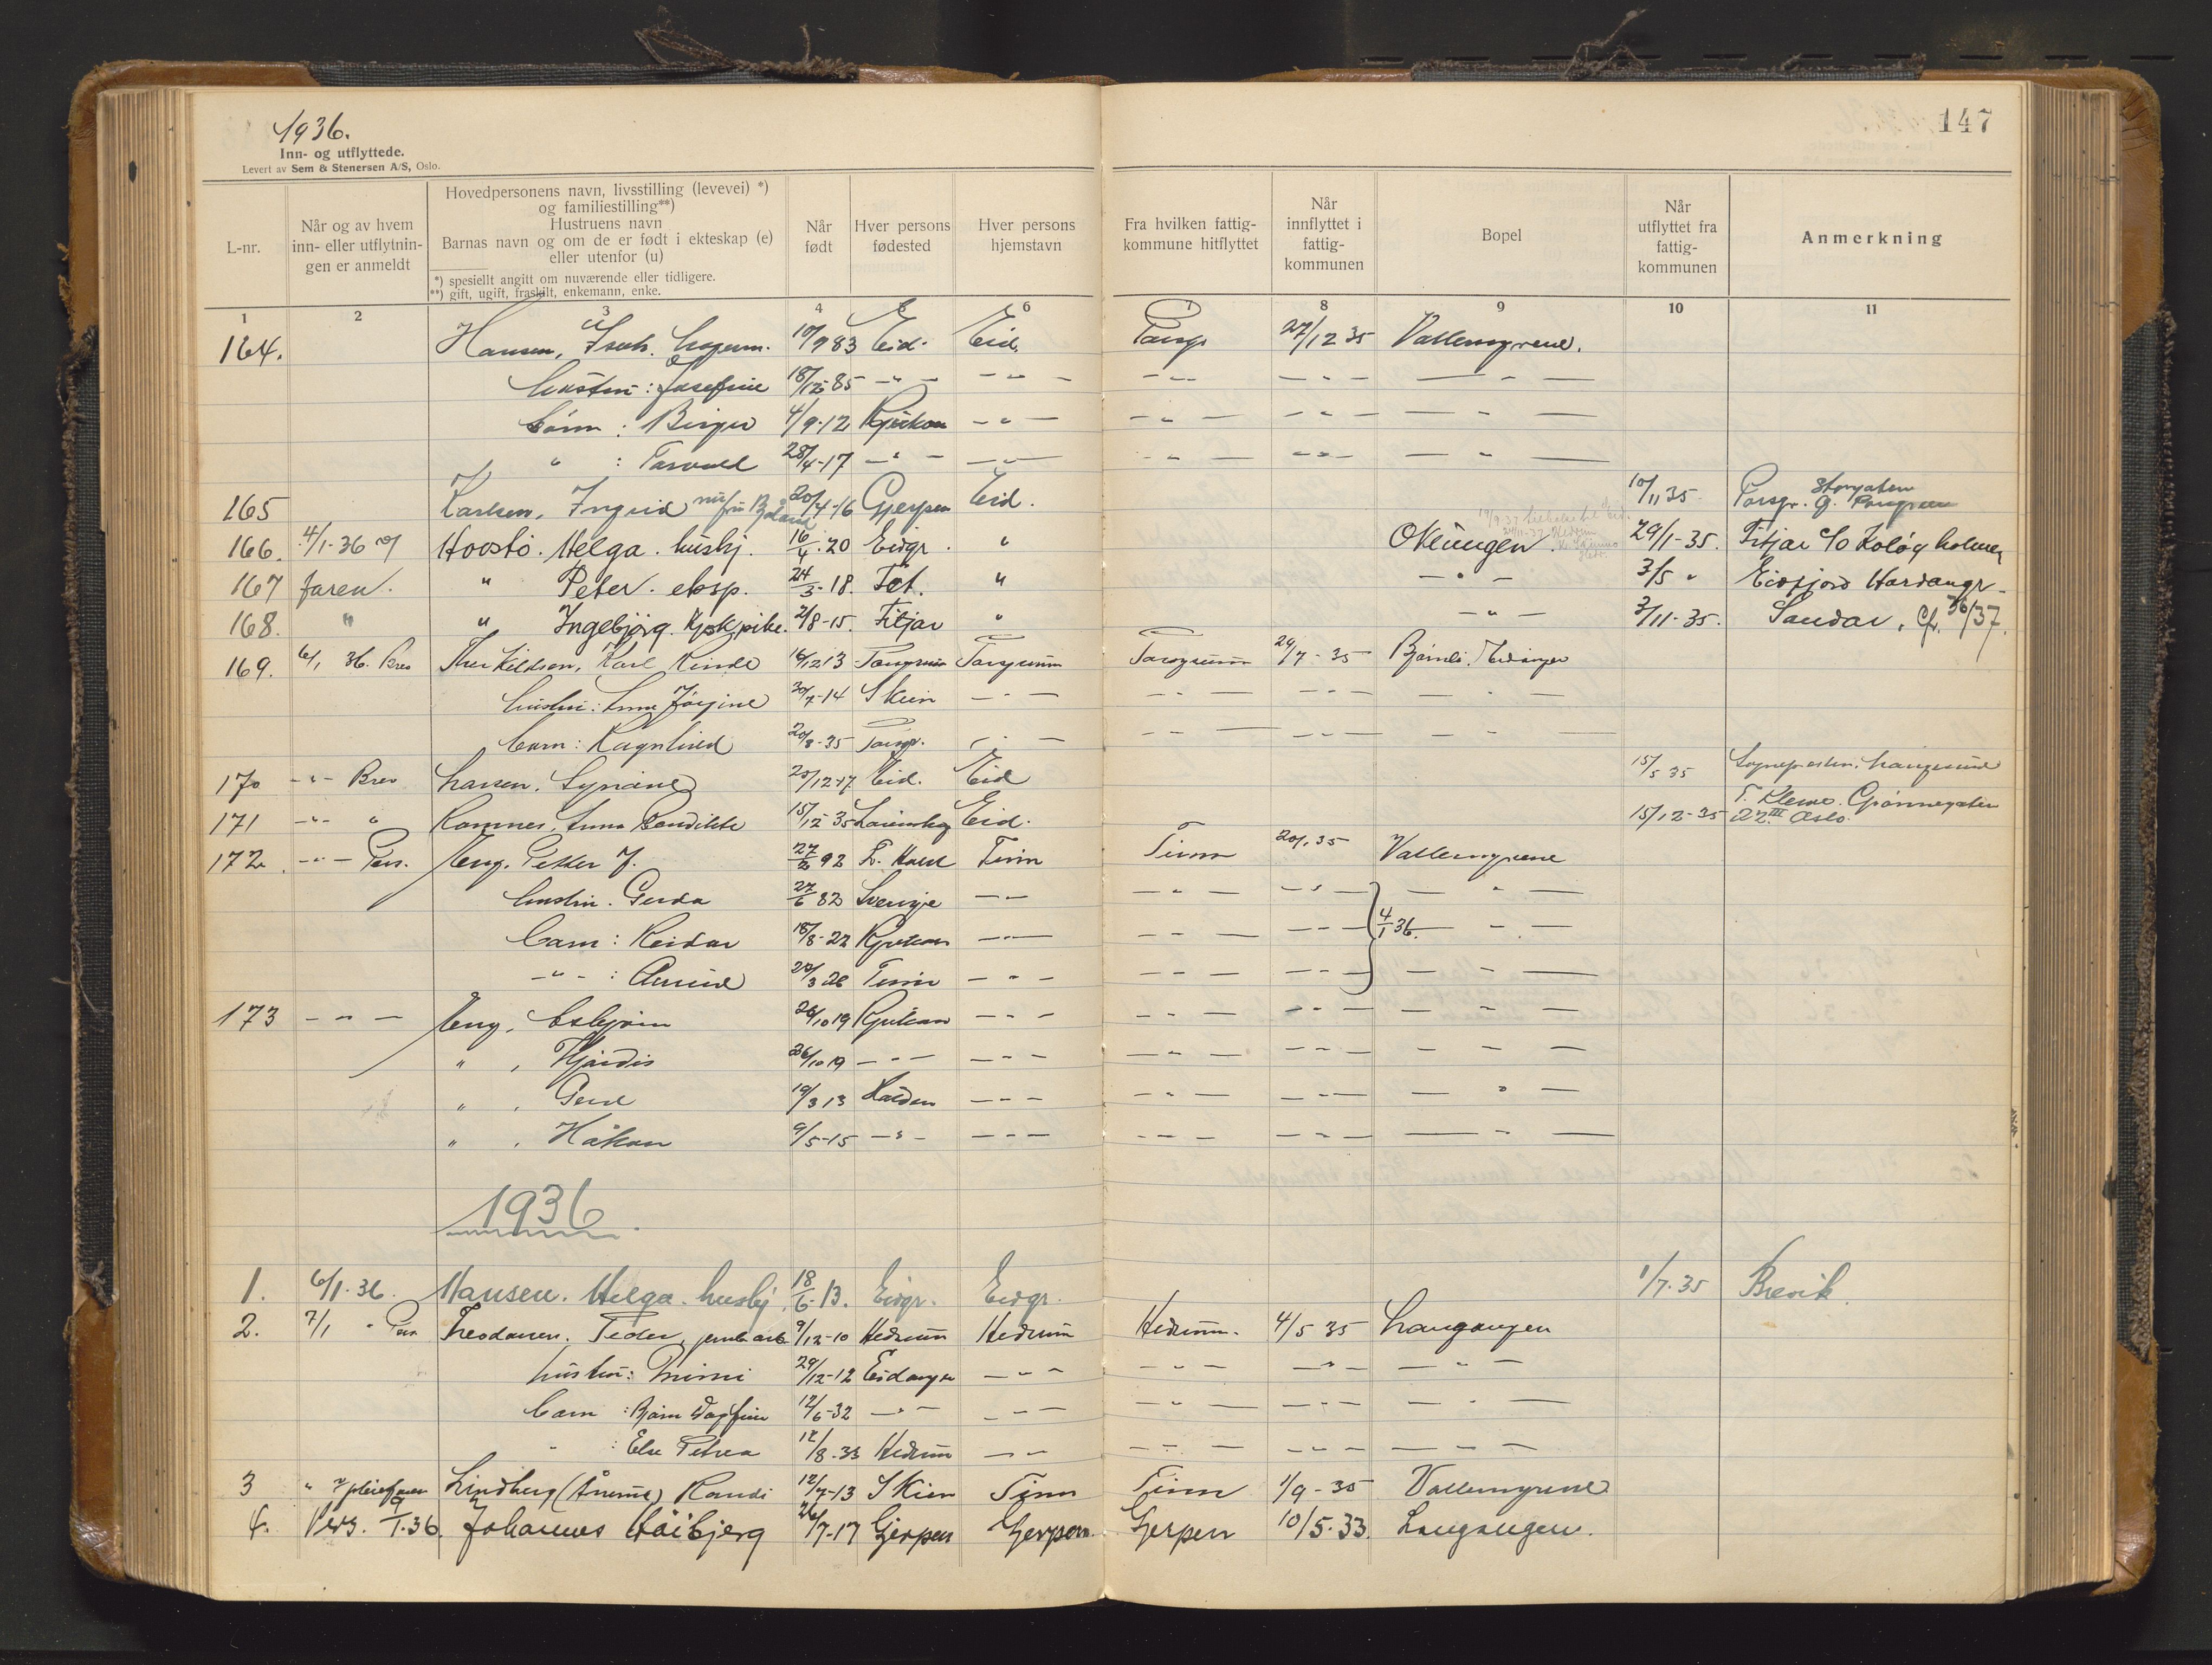 1936.
147
Inn- og utflyttede.
Levert av Sem & Stenersen A/S, Oslo.
L-nr.
Når og av hvem inn- eller utflytnin- gen er anmeldt
Hovedpersonens navn, livsstilling (levevei) *)
og familiestilling**)
Hustruens navn
Barnas navn og om de er født i ekteskap (e)
eller utenfor (u)
*) spesiellt angitt om nuværende eller tidligere.
**) gift, ugift, fraskilt, enkemann, enke.
Når født
Hver persons fødested
Hver persons hjemstavn
Fra hvilken fattig- kommune hitflyttet
Når innflyttet i fattig- kommunen
Bopel
Når utflyttet fra fattig- kommunen
Anmerkning
1 2 3 4 5 6 7 8 9 10 11
164. Hansen, 10/9 83 Eid. Eid. Porsgr 27/12 35 Vallermyrene.
Hustru: Josefine 18/12-85 -"- -"- -"- -"- -"-
barn: Birger 4/9-12 Rjukan -"- -"- -"- -"-
" : Torvald 28/4-17 -"- -"- -"- -"- -"-
165 Karlsen, Ingrid 20/4-16 Gjerpen Eid. 10/11 35 Porsgr. Storgaten
166. 4/1-36 av Hovsbø. Helga. hushj. 16/4.20 Eidgr. " Økungen. 29/1-35. Fitjar c/o Koløy
167 faren. " Peter. eksp. 24/3-18. Fet. " -"- 3/5 " Eidfjord Hardanger
168. " " Ingebjörg. Kjøkpike. 2/8-15. Fitjar " -"- 3/11-35. Sandar, Cfr. 36/37.
169. 6/1 36. Brev Therkildsen, Karl 16/12 13 Porsgrunn Porsgrunn Porsgrunn 29/7-35 Bjørnli. Eidanger
hustru: Anna Jørgine 30/7-14 Skien -"- -"- -"- -"-
barn: Ragnhild 20/8-35 Porsgr. -"- -"- -"- -"-
170 -"- Brev Larsen. Synnøve 20/12-17 Eid. Eid 15/5 35 Langesund
171 -"- " Ramnes, Anna Bendikte 15/12-35 Lørenskog Eid. 15/12-35 Grønnegaten 22 III Oslo.
172. -"- Pers. Heng. Petter J. 27/2 92 Tinn Tinn 20/1 35 Vallermyrene
hustru. Gerda 27/6 82 Sverige -"- -"- -"- -"-
barn: Reidar 18/8-22 Rjukan -"- -"- -"- 4/1 36. -"-
-"- : Amund 20/3 26 Tinn -"- -"- -"- -"-
173 -"- Heng, Asbjørn 26/10 19 Rjukan -"- -"- -"- -"-
" , Hjørdis 26/10 19 -"- -"- -"- -"- -"-
" , Gerd 19/3 13 Halden -"- -"- -"- -"-
" , Håkon 9/5-15 -"- -"- -"- -"- -"-
1936.
1. 6/1-36. Hansen. Helga. hushj. 18/6-13. Eidgr. Eidgr. 1/7-35 Brevik.
2. 7/1 " Pers Treodorsen. Peder, 9/12-10 Hedrum Hedrum Hedrum. 4/5 35 Langangen
hustru: Mimi 29/12-12 Eidanger -"- -"- -"- -"-
barn : Bjørn Dagfinn 12/6-32 -"- -"- -"- -"- -"-
" : Else Petrea 12/8-33 Hedrum -"- -"- -"- -"-
3 " Lindberg Randi 12/7-13 Skien Tinn Tinn 1/9-35 Vallermyrene
4. Pers. 9/1.36. Johannes Håibjerg 26/7-17 Gjerpen Gjerpen. Gjerpen 10/5-33. Langangen.